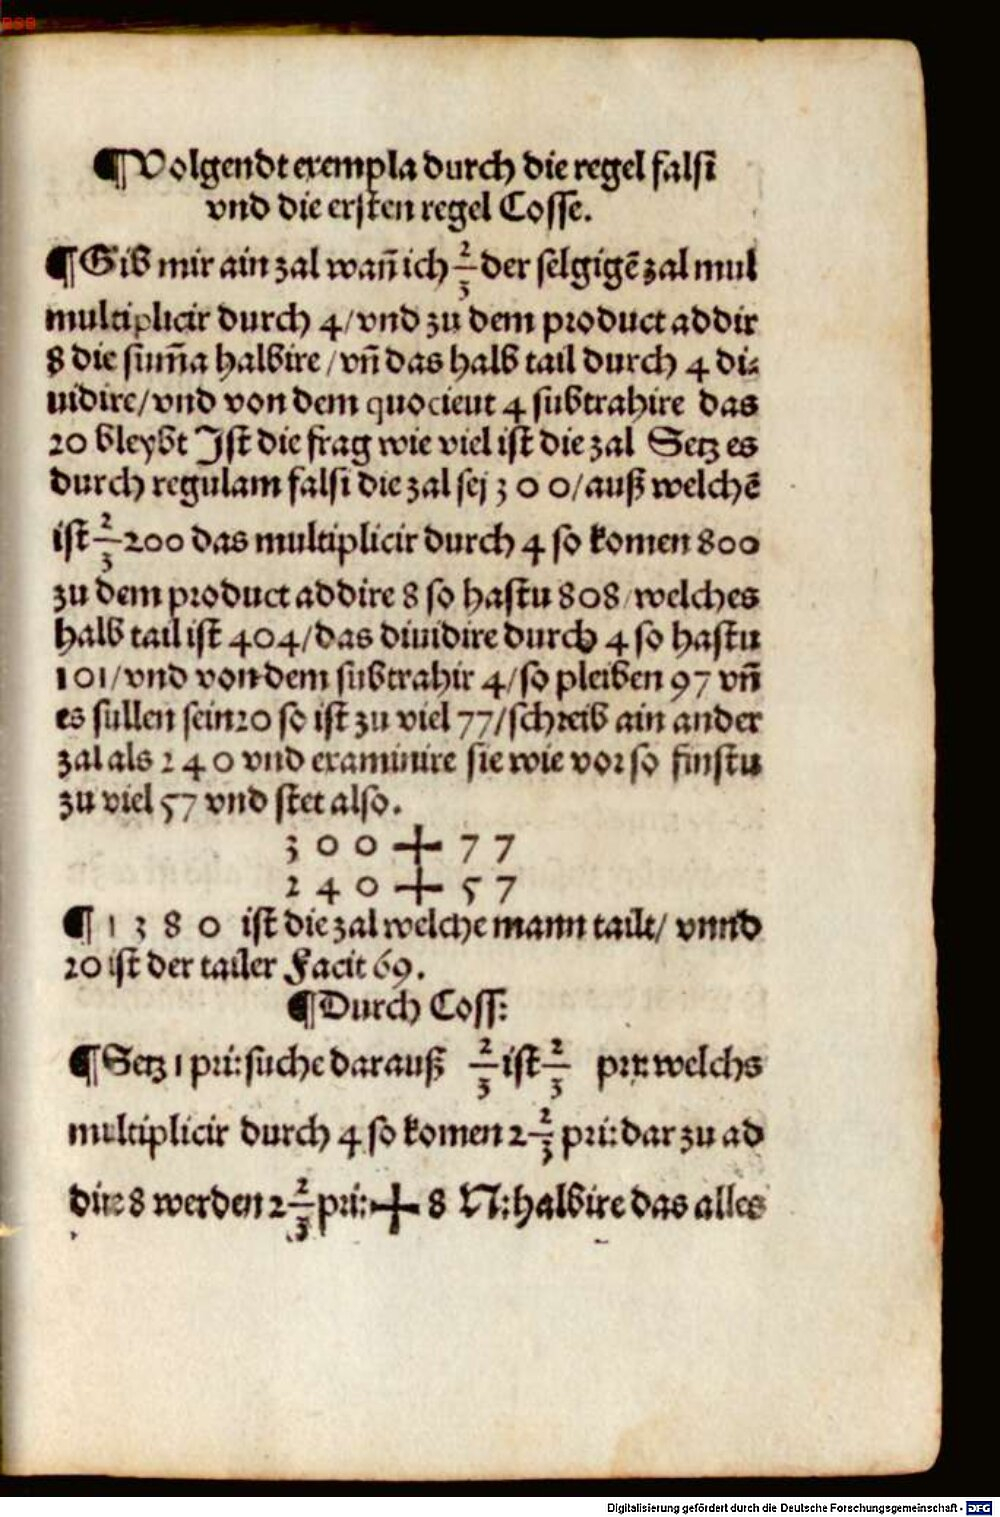 BSB
¶Volgendt exempla durch die regel falsi
vnd die ersten regel Cosse.
¶Gib mir ain zal wañ ich 2/3 der selgigē zal mul
multiplicir durch 4/vnd zu dem product addir
8 die sum̄a halbire/vñ das halb tail durch 4 di⸗
uidire/vnd von dem quocieut 4 subtrahire das
20 bleybt Ist die frag wie viel ist die zal Setz es
durch regulam falsi die zal sej 300/auß welchē
ist 2/3 200 das multiplicir durch 4 so komen 800
zu dem product addire 8 so hastu 808/welches
halb tail ist 404/das diuidire durch 4 so hastu
101/vnd von dem subtrahir 4/so pleiben 97 vñ
es sullen sein 20 so ist zu viel 77/schreib ain ander
zal als 240 vnd examinire sie wie vor so finstu
zu viel 57 vnd stet also.
300 + 77
240 + 57
¶1380 ist die zal welche mann tailt/ vnnd
20 ist der tailer Facit 69.
¶Durch Coss:
¶Setz 1 pri: suche darauß 2/3 ist 2/3 pri: welchs
multiplicir durch 4 so komen 2 2/3 pri: dar zu ad
dire 8 werden 2 2/3 pri: + 8 N: halbire das alles
Digitalisierung gefördert durch die Deutsche Forschungsgemeinschaft - DFG